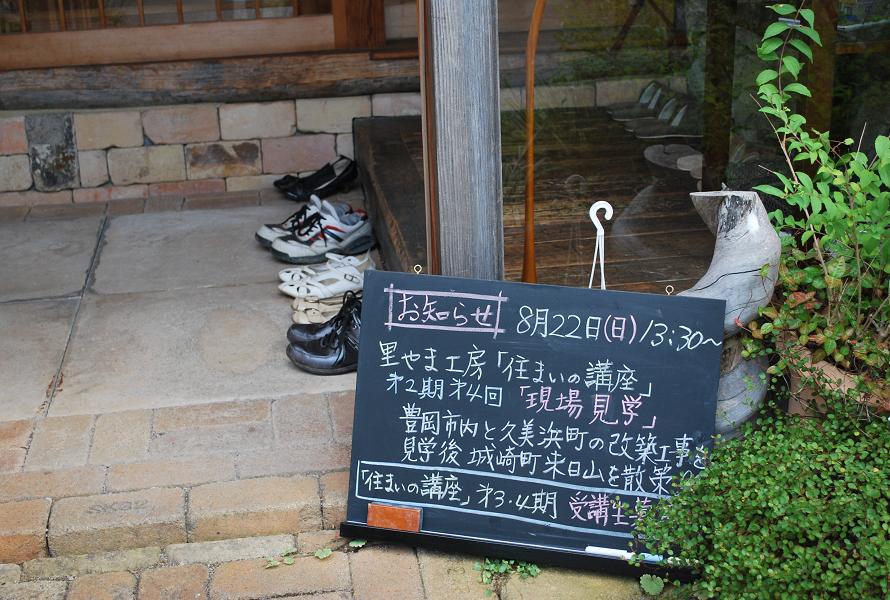 お知らせ 8月22日(日)13:30~
里やま工房「住まいの講座」
才2期才4回「現場見学」
豊岡市内と久美浜町の改築工事を
見学後 城崎町来日山を散策
「住まいの講座」才3・4期 受講生募